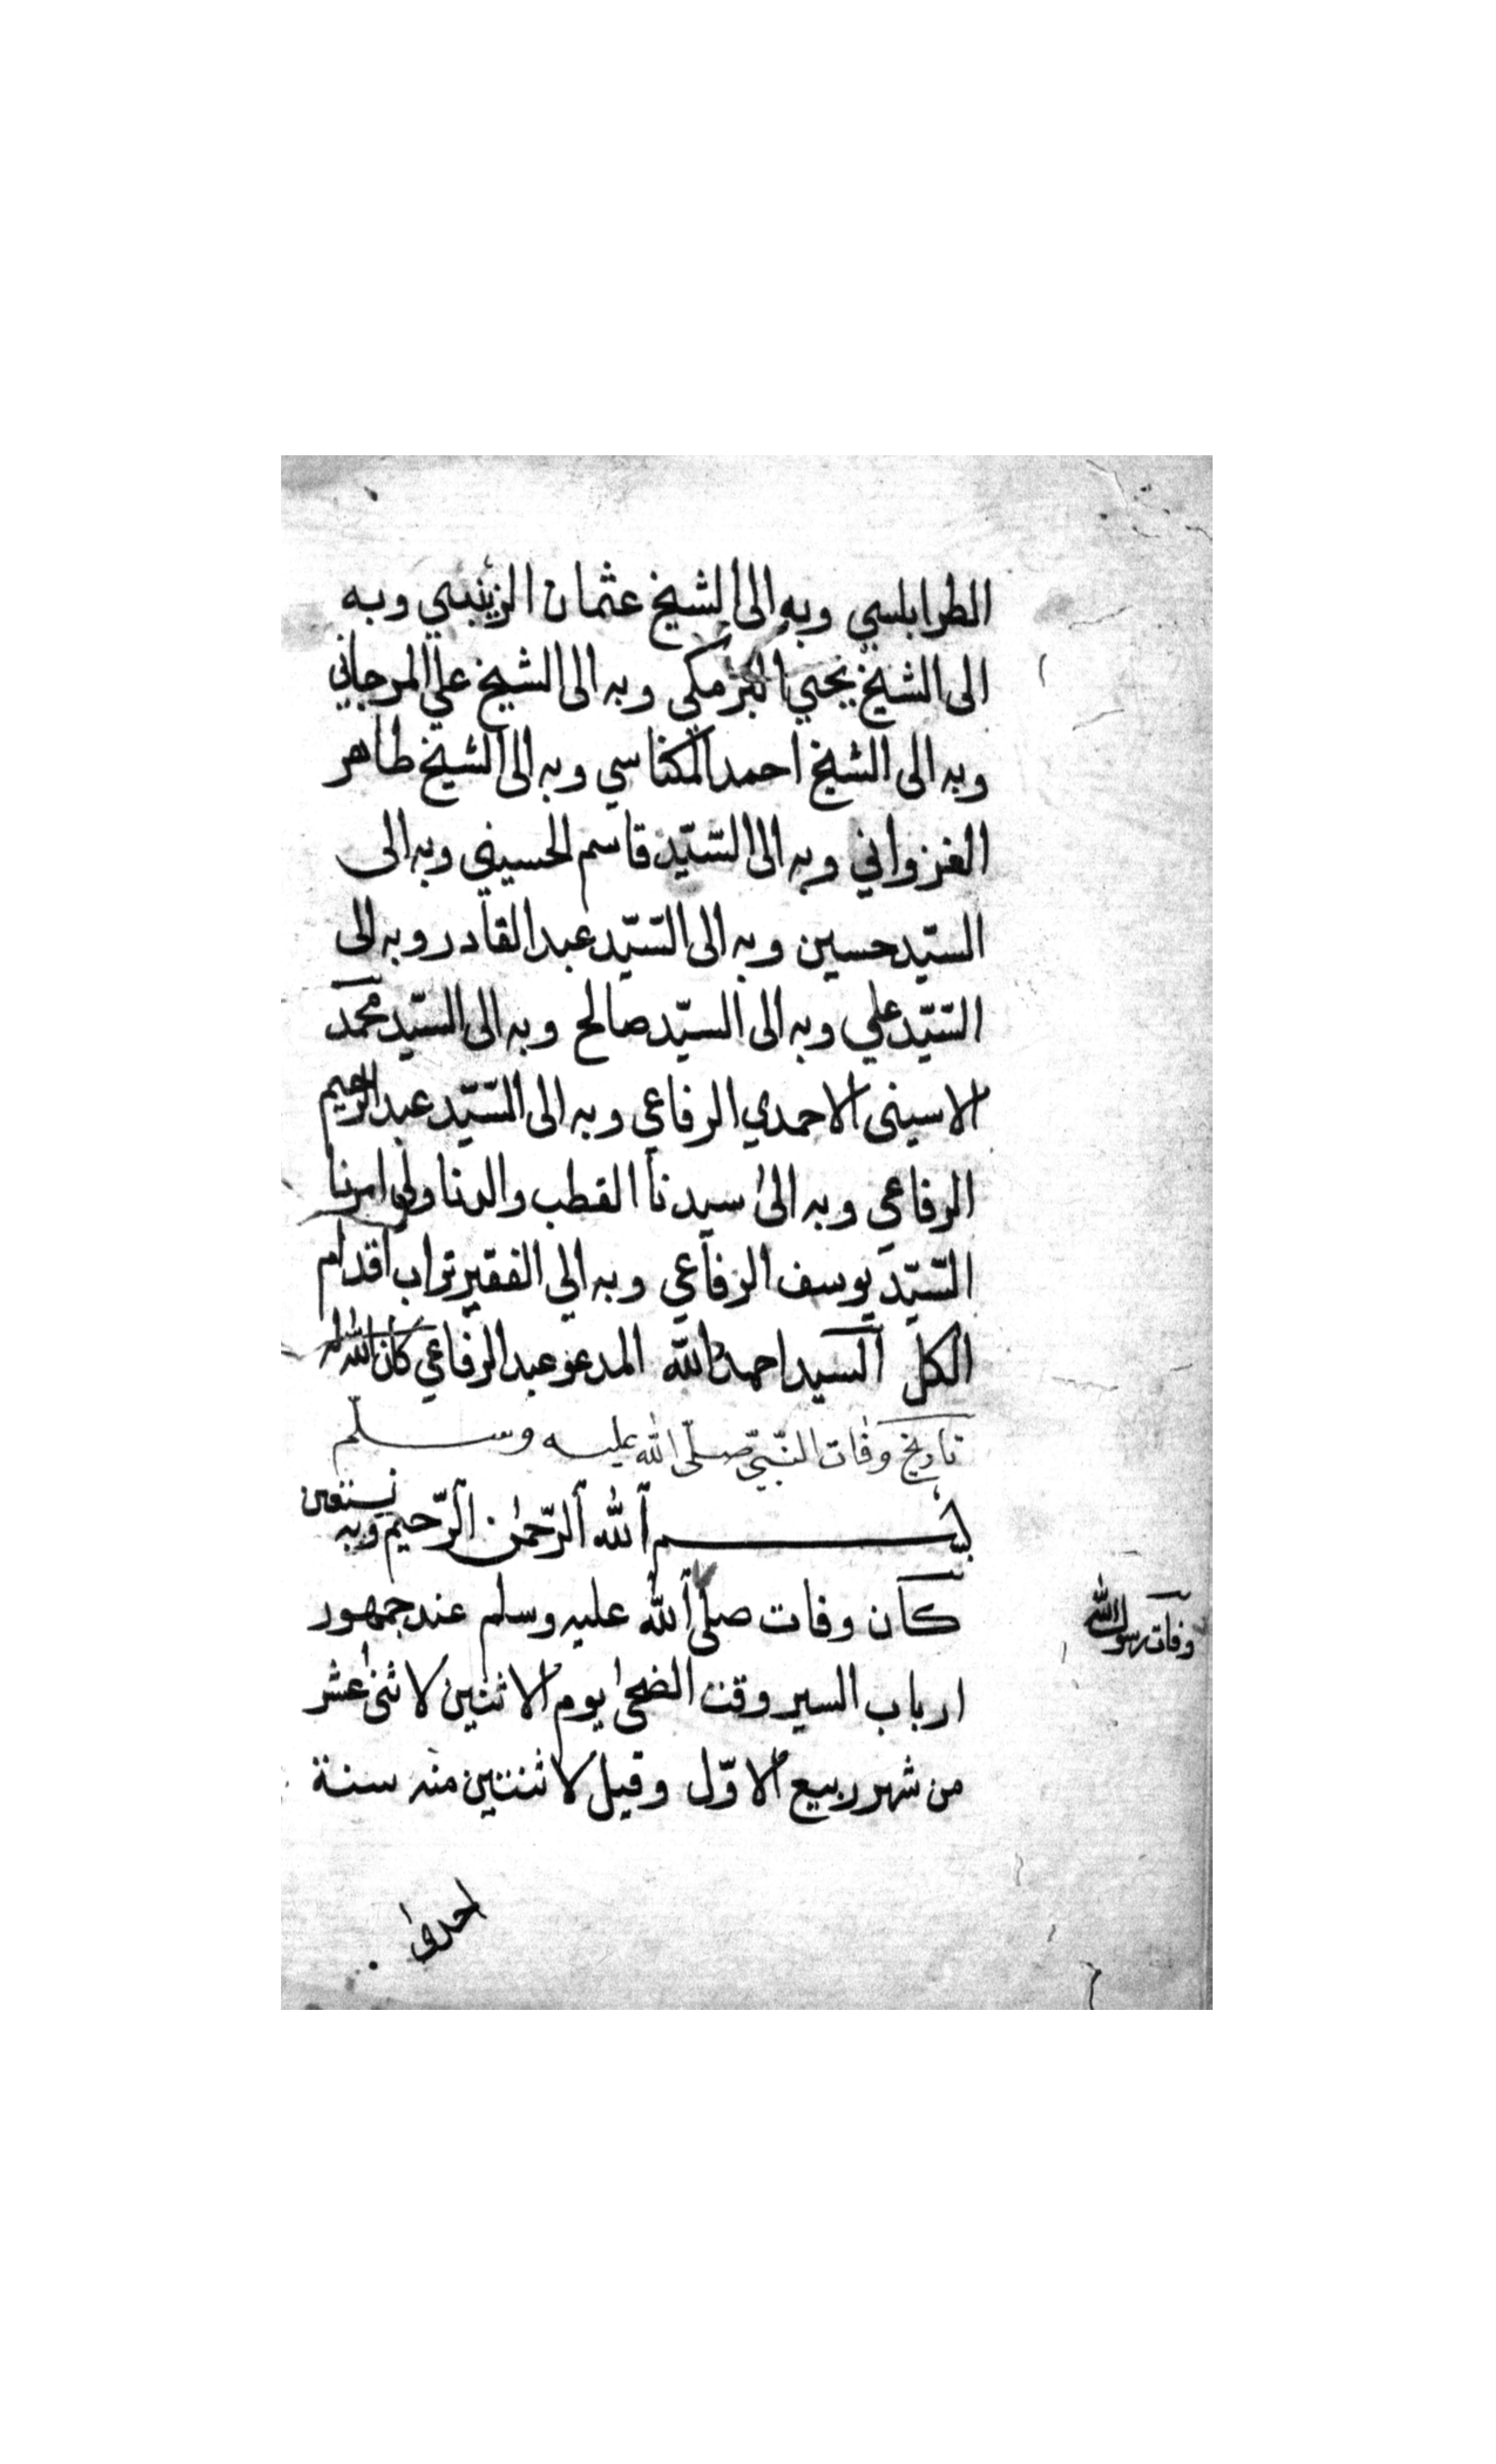 الطرابلسي وبه الى الشيخ عثمان الزينبي وبه
الى الشيخ يحيى البرمكي وبه الى الشيخ علي المرجاني
وبه الى الشيخ احمد المكناسي وبه الى الشيخ طاهر
الغزواني وبه الى السّيّد قاسم الحسيني وبه الى
السيّد حسين وبه الى السّيّد عبد القادر وبه الى
السّيّد علي وبه الى السيّد صالح وبه الى السيّد محمّد
الاسيني الاحمدي الرفاعي وبه الى السّيّد عبد الرحيم
الرفاعي وبه الى سيدنا القطب والدنا ولي امرنا
السّيّد يوسف الرفاعي وبه الي الفقير تراب اقدام
الكل السيد احمد الله المدعو عبد الرفاعي كان الله له
تاريخ وفات النّبيّ صلّى الله عليه وسلّم
بسم الله الرّحمٰن الرّحيم وبه نستعين
كان وفات صلى الله عليه وسلم عند جمهور
وفات رسول الله
ارباب السير وقت الضحىٰ يوم الاثنين لاثنىٰ عشر
من شهر ربيع الاوّل وقيل لاثنتين منه سنة
احدى